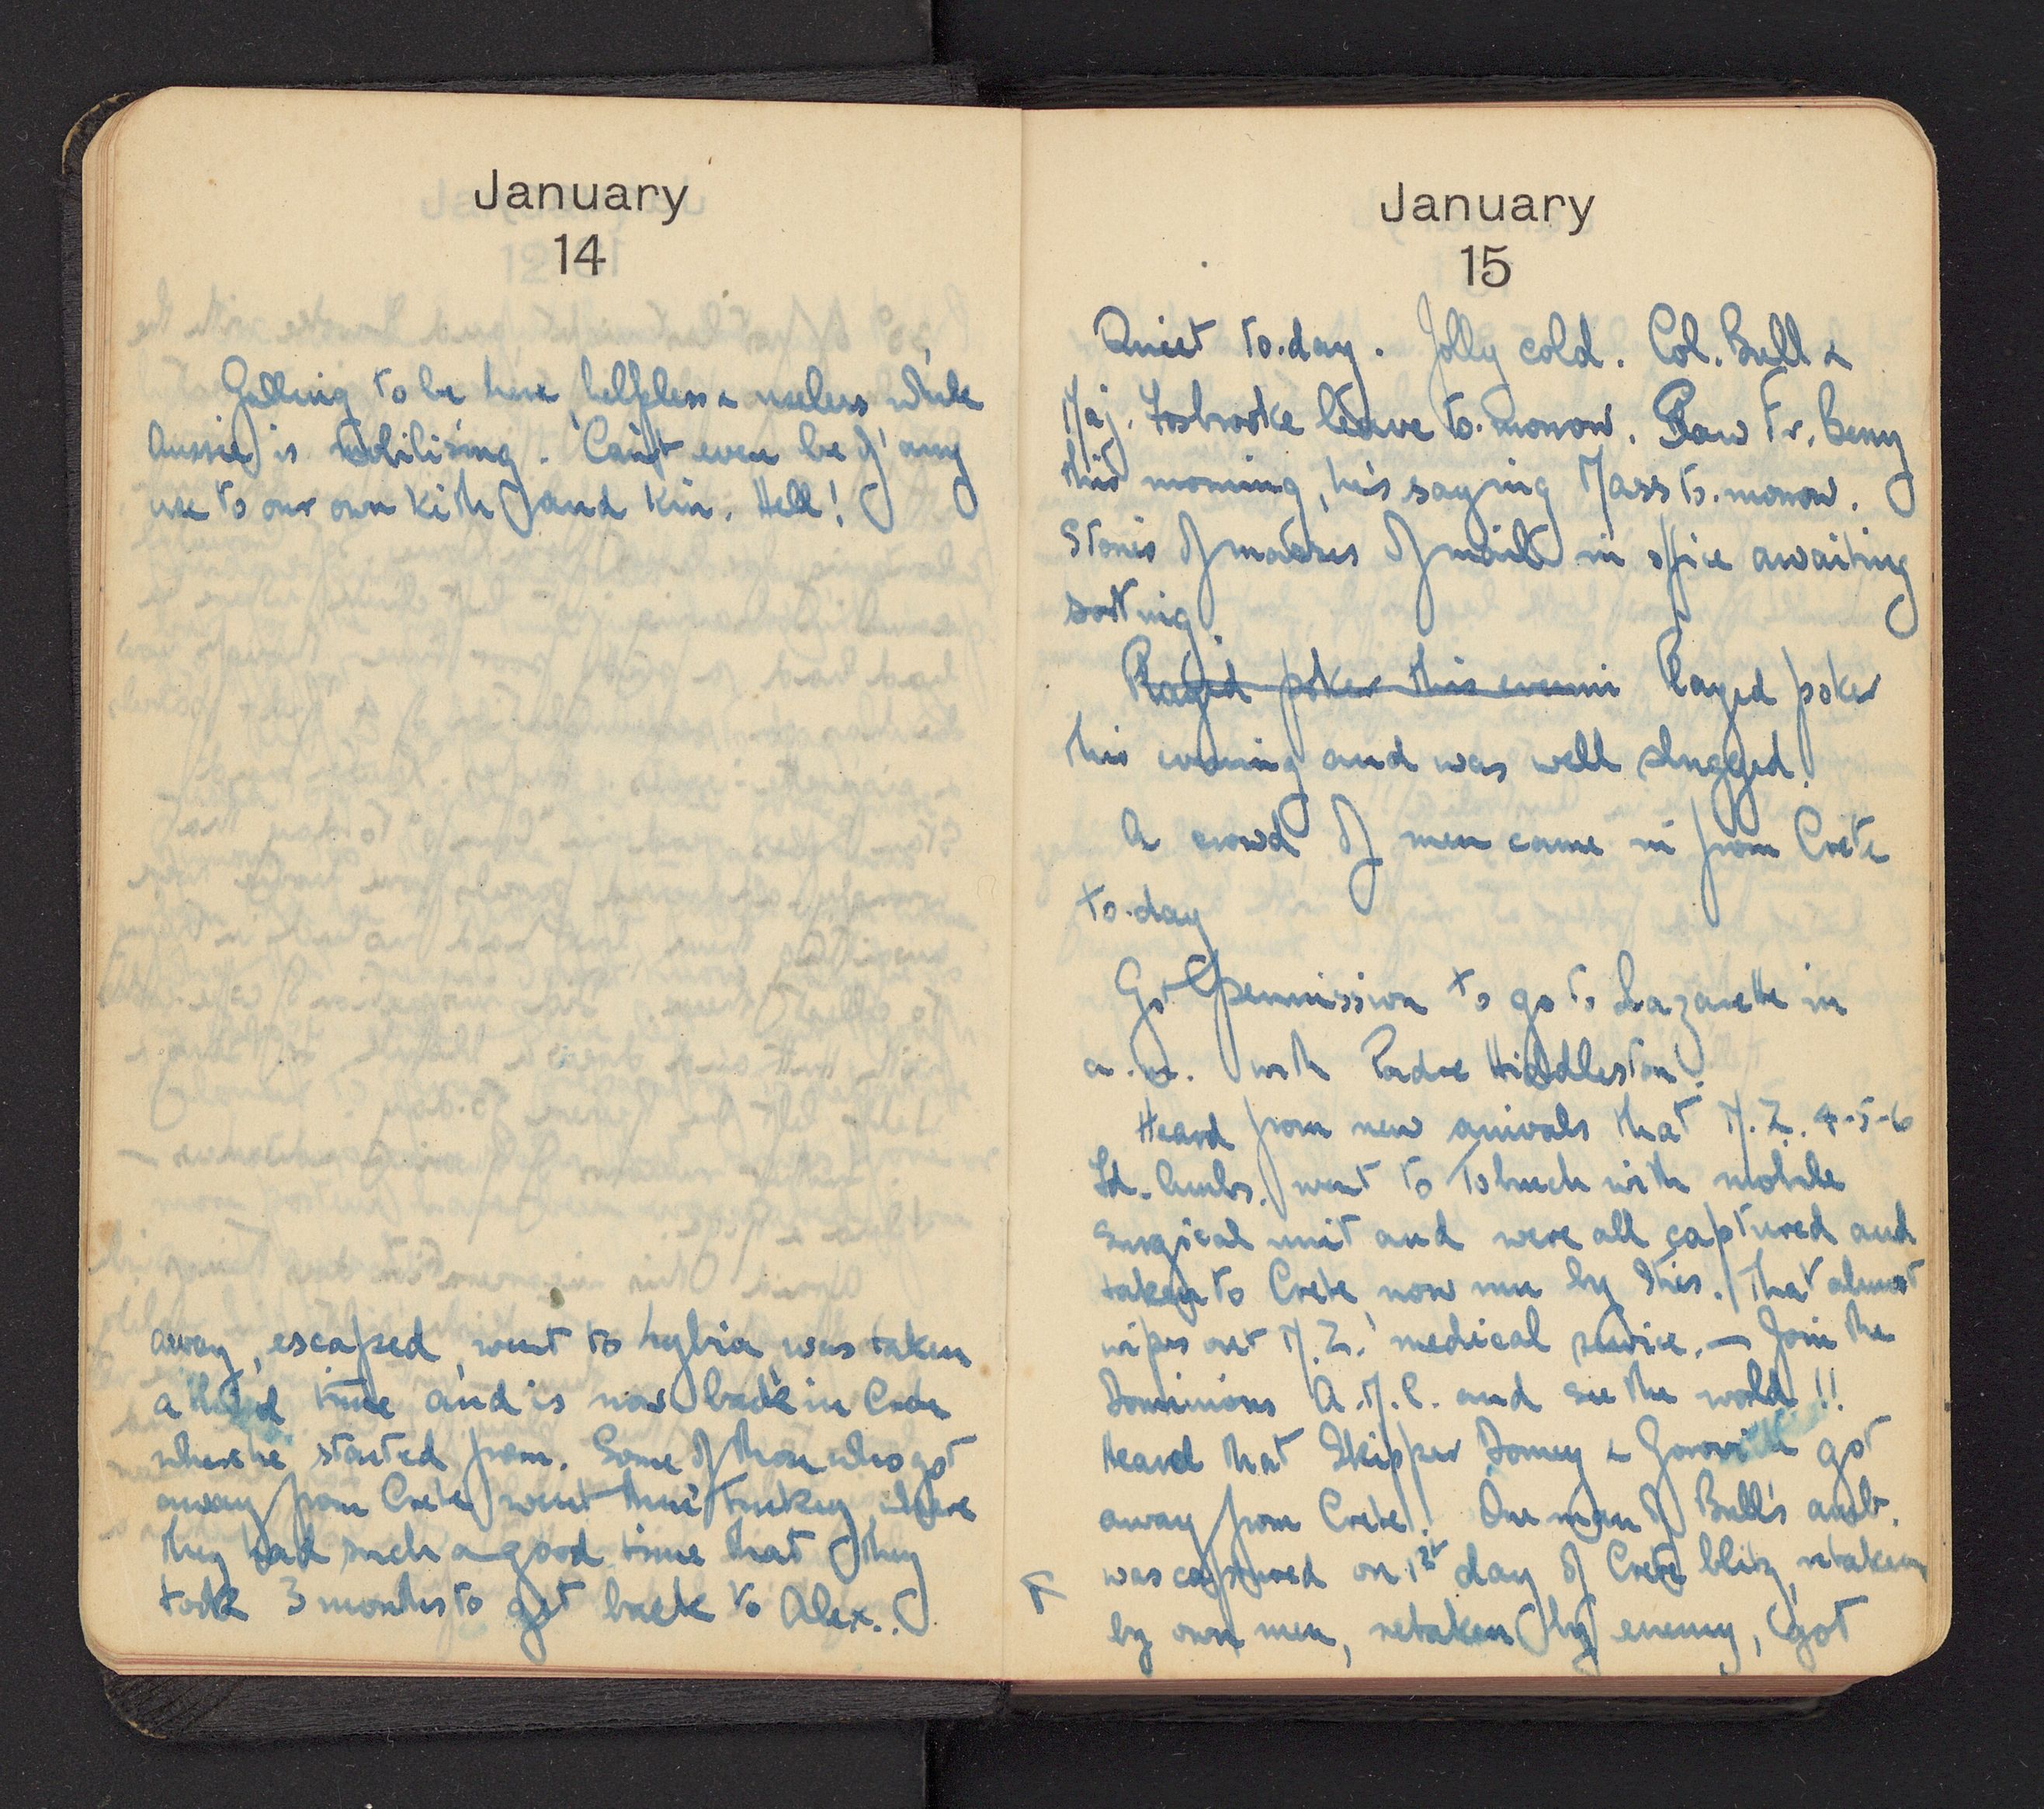 January
14
Galling to be here, helpless & useless while
Aussie is mobilising. Can't even be of any
use to our own kith and kin. Hell!
away, escaped, went to Lybia, was taken
a third time and is now back in Crete
where he started from. Some of those who got
away from Crete went thro' Turkey where
they had such a good time that they
took 3 months to get back to Alex..
January
15
Quiet to.day. Jolly cold. Col. Bull &
Maj. Fosbrooke leave to.morrow. Saw Fr. Berry
this morning, he's saying Mass to.morrow.
Stories of masses of mail in office awaiting
sorting.
Played poker this evenin Played poker
this evening and was well slugged.
A crowd of men came in from Crete
to.day
Got permission to go to Lazarette in
a.m. with Padre Hiddleston.
Heard from new arrivals that N.Z. 4-5-6
Fd. Ambs. went to Tobruch with mobile
surgical unit and were all captured and
taken to Crete, now run by Ities. That almost
wipes out N.Z.' medical service. — Join the
Dominions A.M.C. and see the world!!
Heard that Skipper Dorney & got
away from Crete! One man of Bull's amb.
was captured on 1st day of Crete blitz, retaken
by own men, retaken by enemy, got